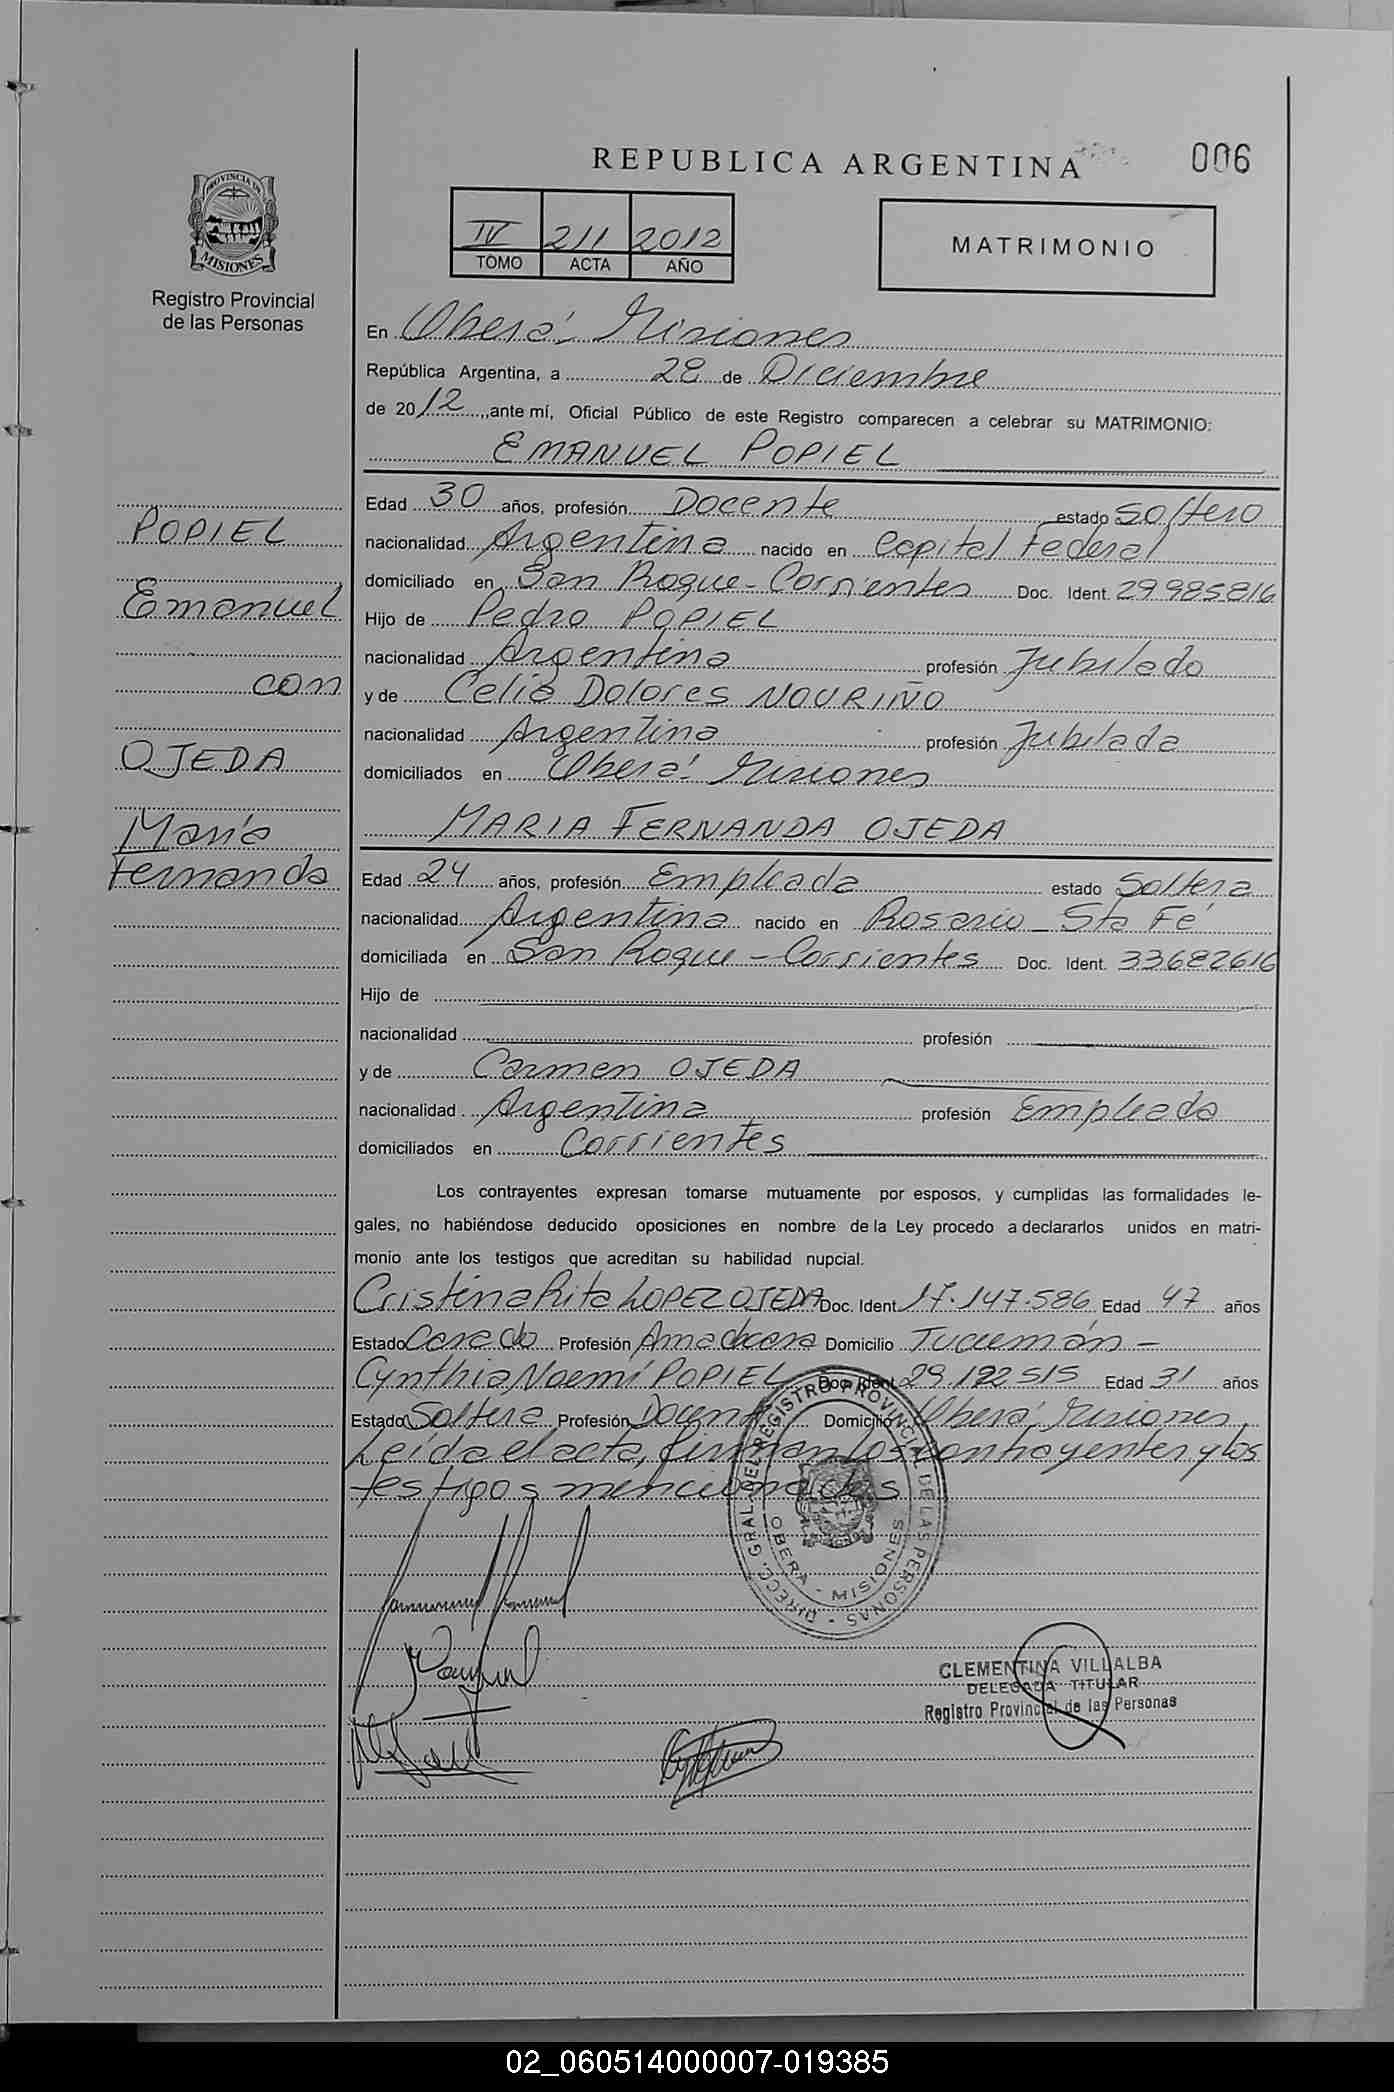 REPUBLICA ARGENTINA
006
PROVINCIA DE
MISIONES
Registro Provincial
de las Personas
IV 211 2012
TOMO ACTA AÑO
MATRIMONIO
En Oberá, Misiones
República Argentina, a 28 de Diciembre
de 2012, ante mí, Oficial Público de este Registro comparecen a celebrar su MATRIMONIO:
EMANUEL POPIEL
Edad 30 años, profesión Docente estado Soltero
nacionalidad Argentina nacido en Capital Federal
domiciliado en San Roque-Corrientes Doc. Ident. 29985816
Hijo de Pedro POPIEL
nacionalidad Argentina profesión Jubilado
y de Celia Dolores NOURIÑO
nacionalidad Argentina profesión Jubilada
domiciliados en Oberá! Misiones
MARIA FERNANDA OJEDA
Edad 24 años, profesión Empleada estado Soltera
nacionalidad Argentina nacido en Rosario - Sta Fé
domiciliada en San Roque - Corrientes Doc. Ident. 33682616
Hijo de
nacionalidad profesión
y de Carmen OJEDA
nacionalidad Argentina profesión Empleada
domiciliados en Corrientes
POPIEL
Emanuel
con
OJEDA
María
Fernanda
Los contrayentes expresan tomarse mutuamente por esposos, y cumplidas las formalidades le-
gales, no habiéndose deducido oposiciones en nombre de la Ley procedo a declararlos unidos en matri-
monio ante los testigos que acreditan su habilidad nupcial.
Cristina Rita LOPEZ OJEDA Doc. Ident. 17.147.586 Edad 47 años
Estado Casada Profesión Ama de casa Domicilio Tucumán -
Cynthia Noemí POPIEL Doc. Ident. 29.122515 Edad 31 años
Estado Soltera Profesión Docente Domicilio Oberá, Misiones
Leída el acta, firman los contrayentes y los
testigos mencionados
DIRECC. GRAL. DEL REGISTRO PROVINCIAL DE LAS PERSONAS
OBERA - MISIONES
CLEMENTINA VILLALBA
DELEGADA TITULAR
Registro Provincial de las Personas
02_060514000007-019385